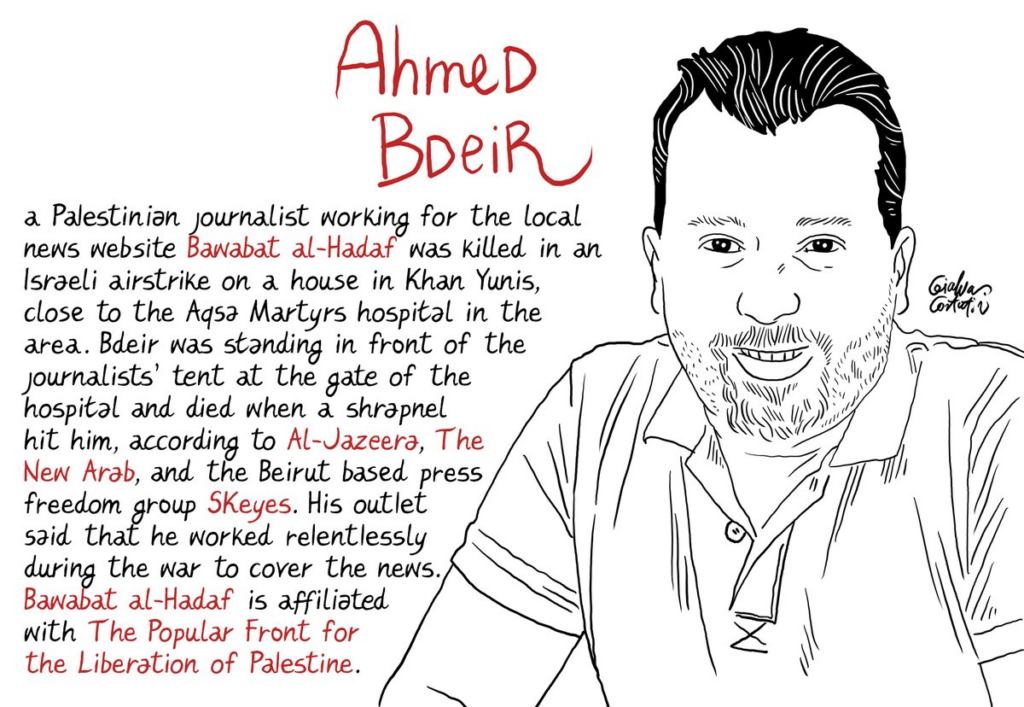 AhmeD
BDeiR
a Palestinian journalist working for the local
news website Bawabat al-Hadaf was killed in an
Israeli airstrike on a house in Khan Yunis,
close to the Aqsa Martyrs hospital in the
area. Bdeir was standing in front of the
journalists' tent at the gate of the
hospital and died when a shrapnel
hit him, according to Al-Jazeera, The
New Arab, and the Beirut based press
freedom group SKeyes. His outlet
said that he worked relentlessly
during the war to cover the news.
Bawabat al-Hadaf is affiliated
with The Popular Front for
the Liberation of Palestine.